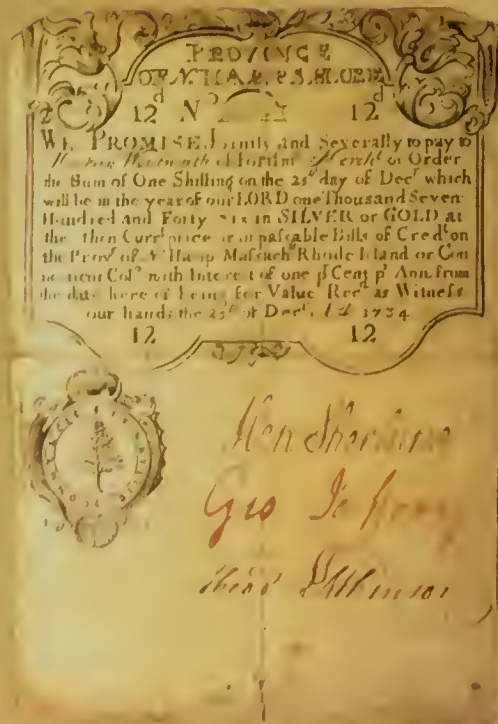 PROVINCE
OF N. HAMP.S.HIRE
12d No 12d
WE PROMISE Jointly and Severally to pay to
of Portsmo Mercht or Order
the Sum of One Shilling on the 25t day of Decr which
will be in the year of our LORD one Thousand Seven
Hundred and Forty Six in SILVER or GOLD at
the then Currt price or in passable Bills of Credt on
the Prove of N Hamp Massach Rhode Island or Con
necticut Colo with Interest of one pr Cent pr Ann. from
the date hereof being for Value Recd as Witness
our hands the 25t of Decr. 1734
12 12
Hen Sherburne
Geo Jaffrey
Theod Atkinson